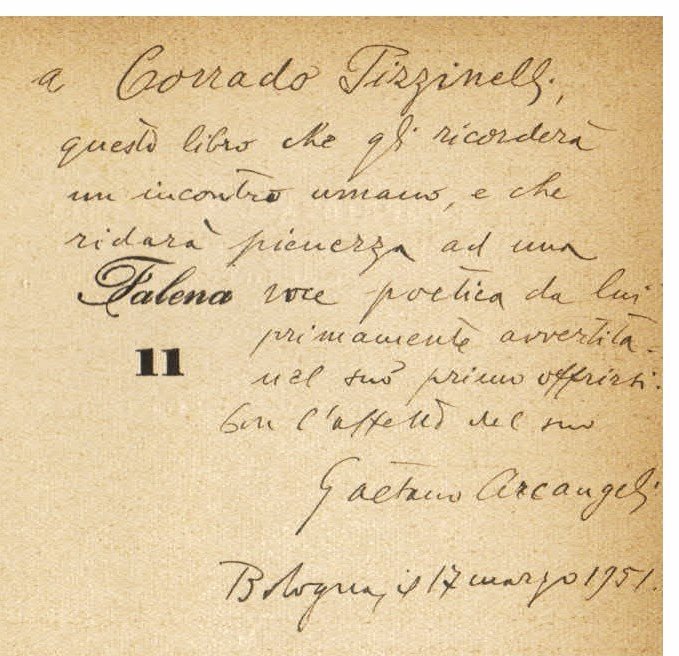 a Corrado Pizzinelli,
questo libro che gli ricorderà
un incontro umano, e che
ridarà pienezza ad una
Falena voce poetica da lui
primamente avvertita
11
nel suo primo offrirsi.
Con l'affetto del suo
Gaetano Arcangeli
Bologna, il 17 marzo 1951.